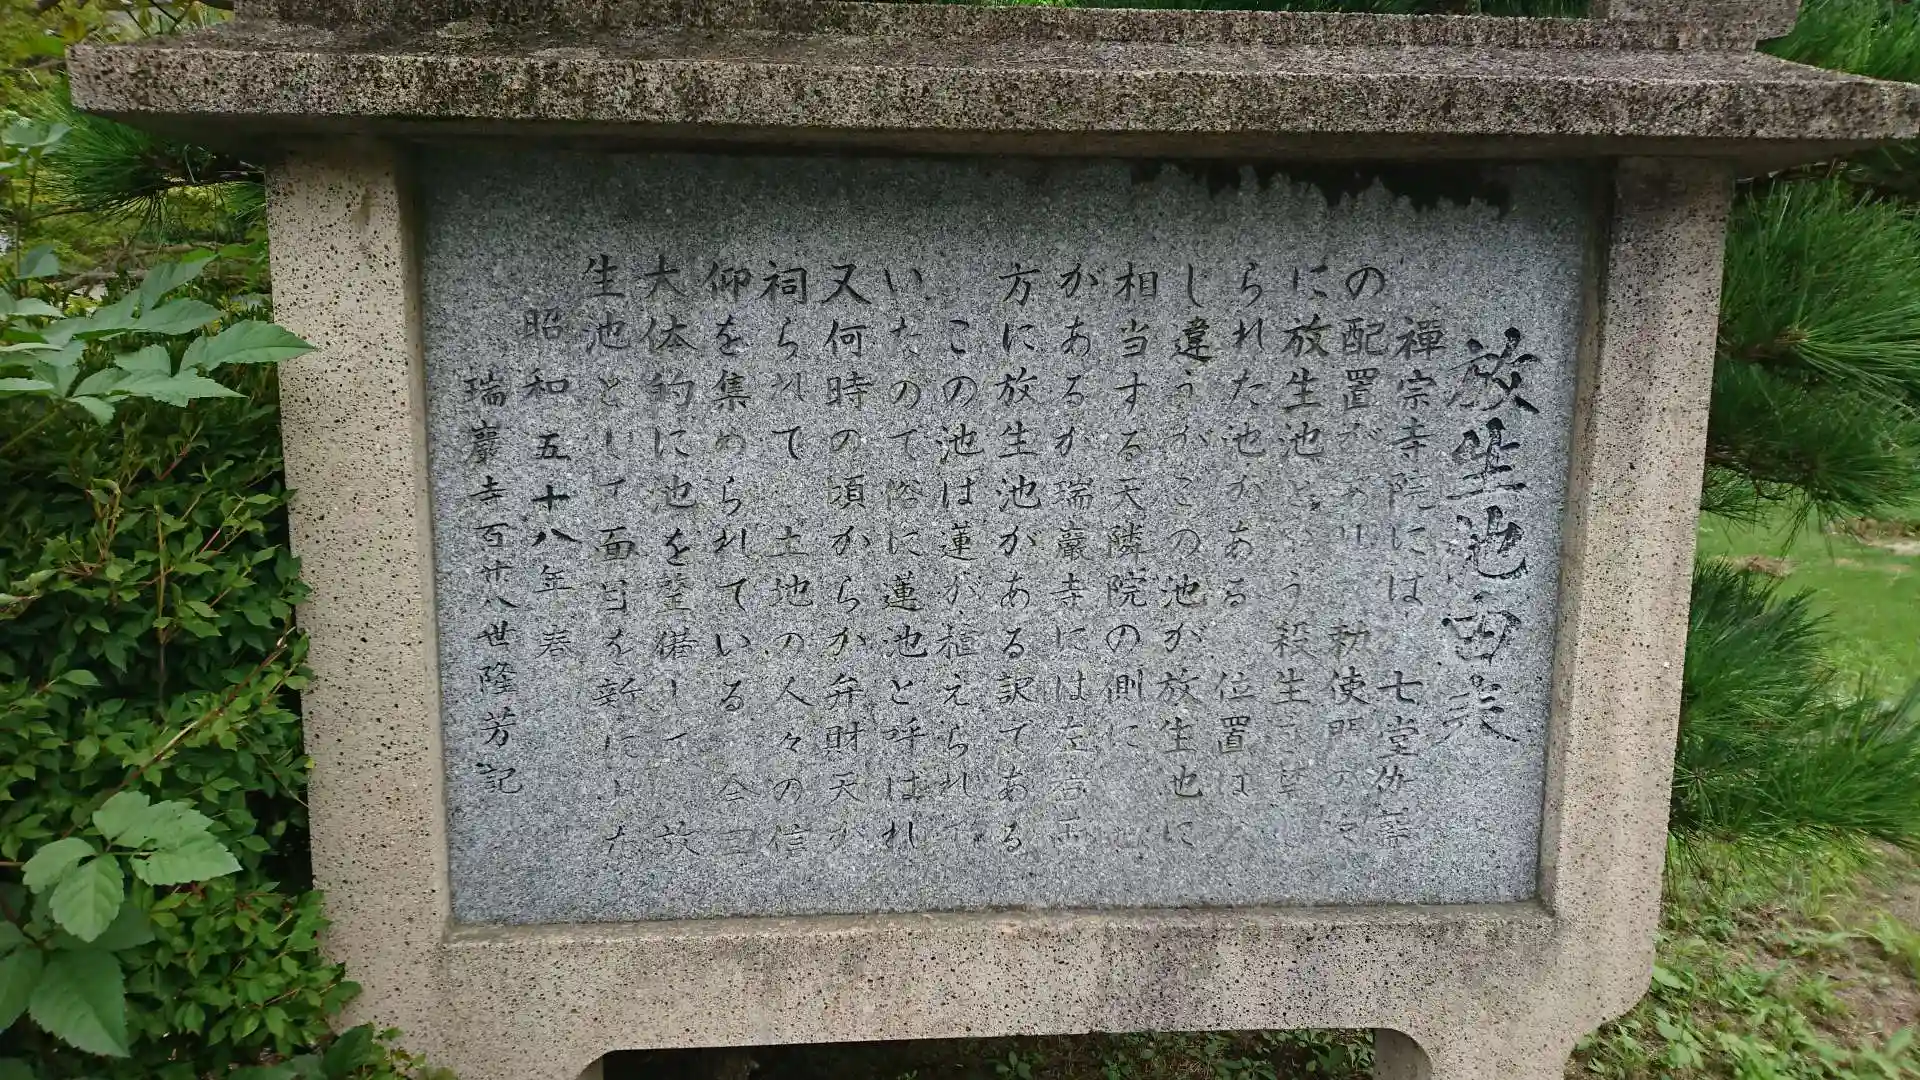 放生池由来
禅宗寺院には 七堂伽藍
の配置があり 勅使門の内
に放生池という殺生を禁
られた池がある 位置は
し違うがこの池が放生池に
相当する天隣院の側に
があるが瑞巌寺には左右両
方に放生池がある訳である
この池は蓮が植えられて
いたので俗に蓮池と呼ばれ
又何時の頃からか弁財天が
祠られて 土地の人々の信
仰を集められている 今回
大体的に池を整備して 放
生池として面目を新にした
昭和五十八年春
瑞巌寺百廿八世隆芳記